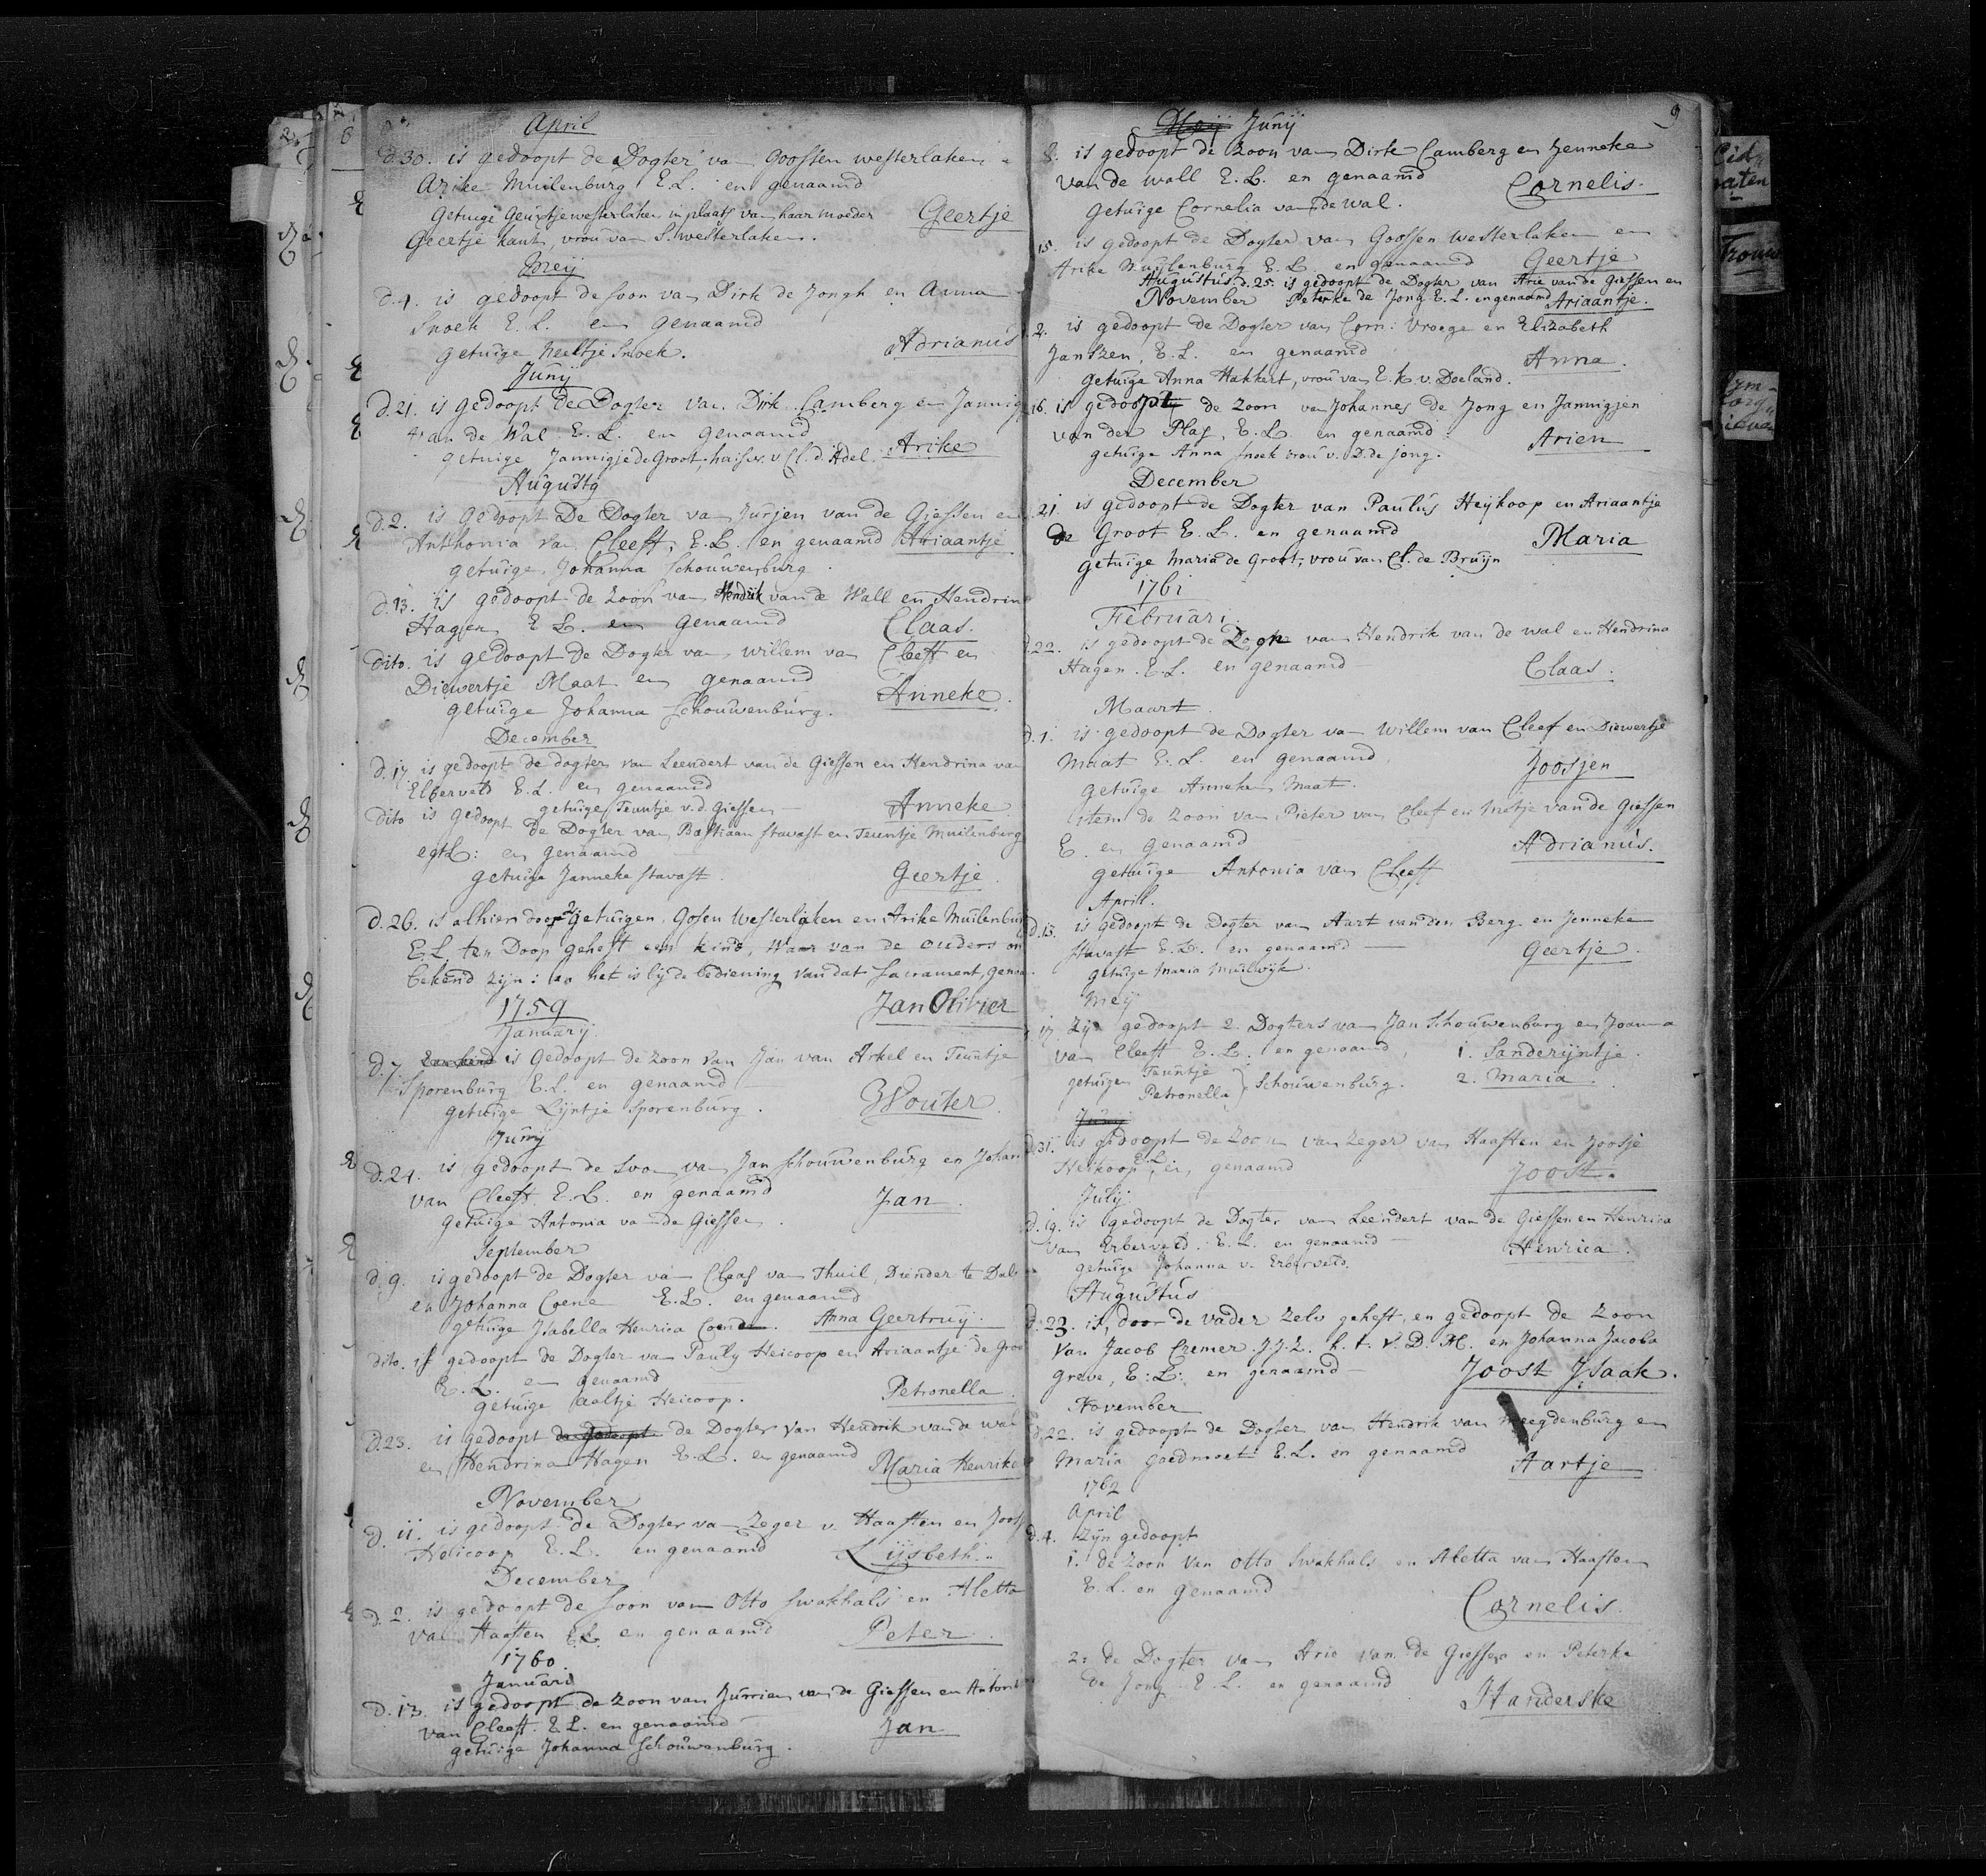 April
d. 30. is gedoopt de Dogter van Goossen westerlaken
Arike Muilenburg E.L. en genaamd
getuige Geurtje westerlaken in plaats van haar moeder Geertje
Geertje kant, vrou van S. westerlaken.
Meij
d. 4. is gedoopt de soon van Dirk de Jongh en Anna
Snoek E.L. en genaamd
getuige Neeltje Snoek. Adrianus
Junij
d. 21. is gedoopt de Dogter van Dirk Camberg en Jannig
van de Wal E.L. en genaamd
getuige Jannigje de Groot huisv. v. Cl. d. Adel. Arike
Augusto
d. 2. is gedoopt De Dogter van Jurjen van de Giessen en
Anthonia van Cleeff, E.L. en genaamd Ariaantje
getuige Johanna Schouwenburg
d. 13. is gedoopt de zoon van Hendrik van de Wall en Hendrin
Hagen E L. en genaamd Claas.
dito. is gedoopt de Dogter van willem van Cleeff en
Diewertje Maat en genaamd Anneke.
getuige Johanna Schouwenburg.
December
d. 17. is gedoopt de dogter van Leendert van de Giessen en Hendrina van
Elberveld E.L. en genaamd
getuige Teuntje v.d. Giessen Anneke
dito is gedoopt de Dogter van Bastiaan stavast en Teuntje Muilenburg
egtl: en genaamd
getuige Janneke stavast. Geertje
d. 26. is alhier door 2 getuigen Gosen Westerlaken en Arike Muilenburg
E.L. ten Doop geheft een kind, waar van de ouders on
bekend zijn: en het is bij de bediening van dat sacrament, gena
1759 Jan Olivier
January
d. 7. Een kind is Gedoopt de zoon van Jan van Arkel en Teuntje
Sporenburg E.L. en genaamd
getuige Lijntje Sporenburg. Wouter
Junij
d. 24. is gedoopt de soon van Jan Schouwenburg en Johan
van Cleeff E.L. en genaamd Jan
getuige Antonia van de Giessen.
September
d. 9. is gedoopt de Dogter van Claas van Thuil, Diender te Dal
en Johanna Coene E.L. en genaamd
getuige Isabella Henrica Coende. Anna Geertruij.
dito. is gedoopt de Dogter van Pauly Heicoop en Ariaantje de Groo
E.L. en genaamd
getuige Aaltje Heicoop. Petronella
d. 23. is gedoopt de gedoopt de Dogter van Hendrik van de wal
en Hendrina Hagen E.L. en genaamd Maria Henrike
November
d. 11. is gedoopt de Dogter van Zeger v. Haaften en Joos
Heicoop E.L. en genaamd Lijsbeth.
December
d. 2. is gedoopt de soon van Otto Swakhals en Aletta
van Haaften E.L. en genaamd Peter
1760
Januari
d. 13. is gedoopt de zoon van Jurrien van de Giessen en Anton
van Cleeff. E.L. en genaamd Jan
getuige Johanna Schouwenburg.
9
Meij Junij
8. is gedoopt de zoon van Dirk Camberg en Jenneke
van de wall E.L. en genaamd Cornelis.
getuige Cornelia van de wal.
15. is gedoopt de Dogter van Goossen Westerlaken en
Arike Muijlenburg E.L. en genaamd Geertje
Augustus d. 25. is gedoopt de Dogter van Arie van de Giessen en
November Peterke de Jong E.L. en genaamd Ariaantje.
2. is gedoopt de Dogter van Corn: Vroege en Elizabeth
Jantzen, E.L. en genaamd Anna.
getuige Anna Hakkert, vrou van E. k. v. Doeland.
16. is gedoopt de zoon van Johannes de Jong en Jannigjen
van der Plas, E.L. en genaamd Arien
getuige Anna Snoek vrou v. D. de Jong.
December
21 is gedoopt de Dogter van Paulus Heijkoop en Ariaantje
de Groot E.L. en genaamd Maria
getuige Maria de Groot, vrou van Cl. de Bruijn
1761
Februari.
22. is gedoopt de Dogter van Hendrik van de wal en Hendrina
Hagen. E.L. en genaamd Claas.
Maart
d. 1. is gedoopt de Dogter van Willem van Cleef en Diewertje
Maat E.L. en genaamd Joosjen
getuige Anneken Maat.
item de zoon van Pieter van Cleef en Metje van de Giessen
E. en genaamd Adrianus.
getuige Antonia van Cleeff
Aprill.
d. 13. is gedoopt de Dogter van Aart van den Berg en Jenneke
stavast E.L. en genaamd Geertje.
getuige Maria Muilwijk.
Meij
17 Zijn gedoopt 2. Dogters van Jan Schouwenburg en Joanna
van Cleeff E.L. en genaamd, 1. Sanderijntje.
getuigen Teuntje 2. Maria.
Petronella } Schouwenburg.
Junij
d. 31. is gedoopt de zoon van Zeger van Haaften en Joosje
Heikoop E.L. en genaamd Joost.
Julij
d. 19. is gedoopt de Dogter van Leendert van de Giessen en Henrica
van Erberveld. E.L. en genaamd Henrica.
getuige Johanna v. Erberveld.
Augustus
d. 23. is, door de vader zelv geheft, en gedoopt de zoon
van Jacob Cremer J.J.Z. h. t. V.D.M. en Johanna Jacoba
Greve, E.L. en genaamd Joost Isaak.
November
d. 22. is gedoopt de Dogter van Hendrik van Meegdenburg en
Maria goedmoet E.L. en genaamd Aartje
1762
April
d. 4. Zijn gedoopt
1. de zoon van Otto Swakhals en Aletta van Haaften
E.L. en genaamd Cornelis.
2: de Dogter van Arie van de Giessen en Peterke
de Jong E.L. en genaamd Handerske